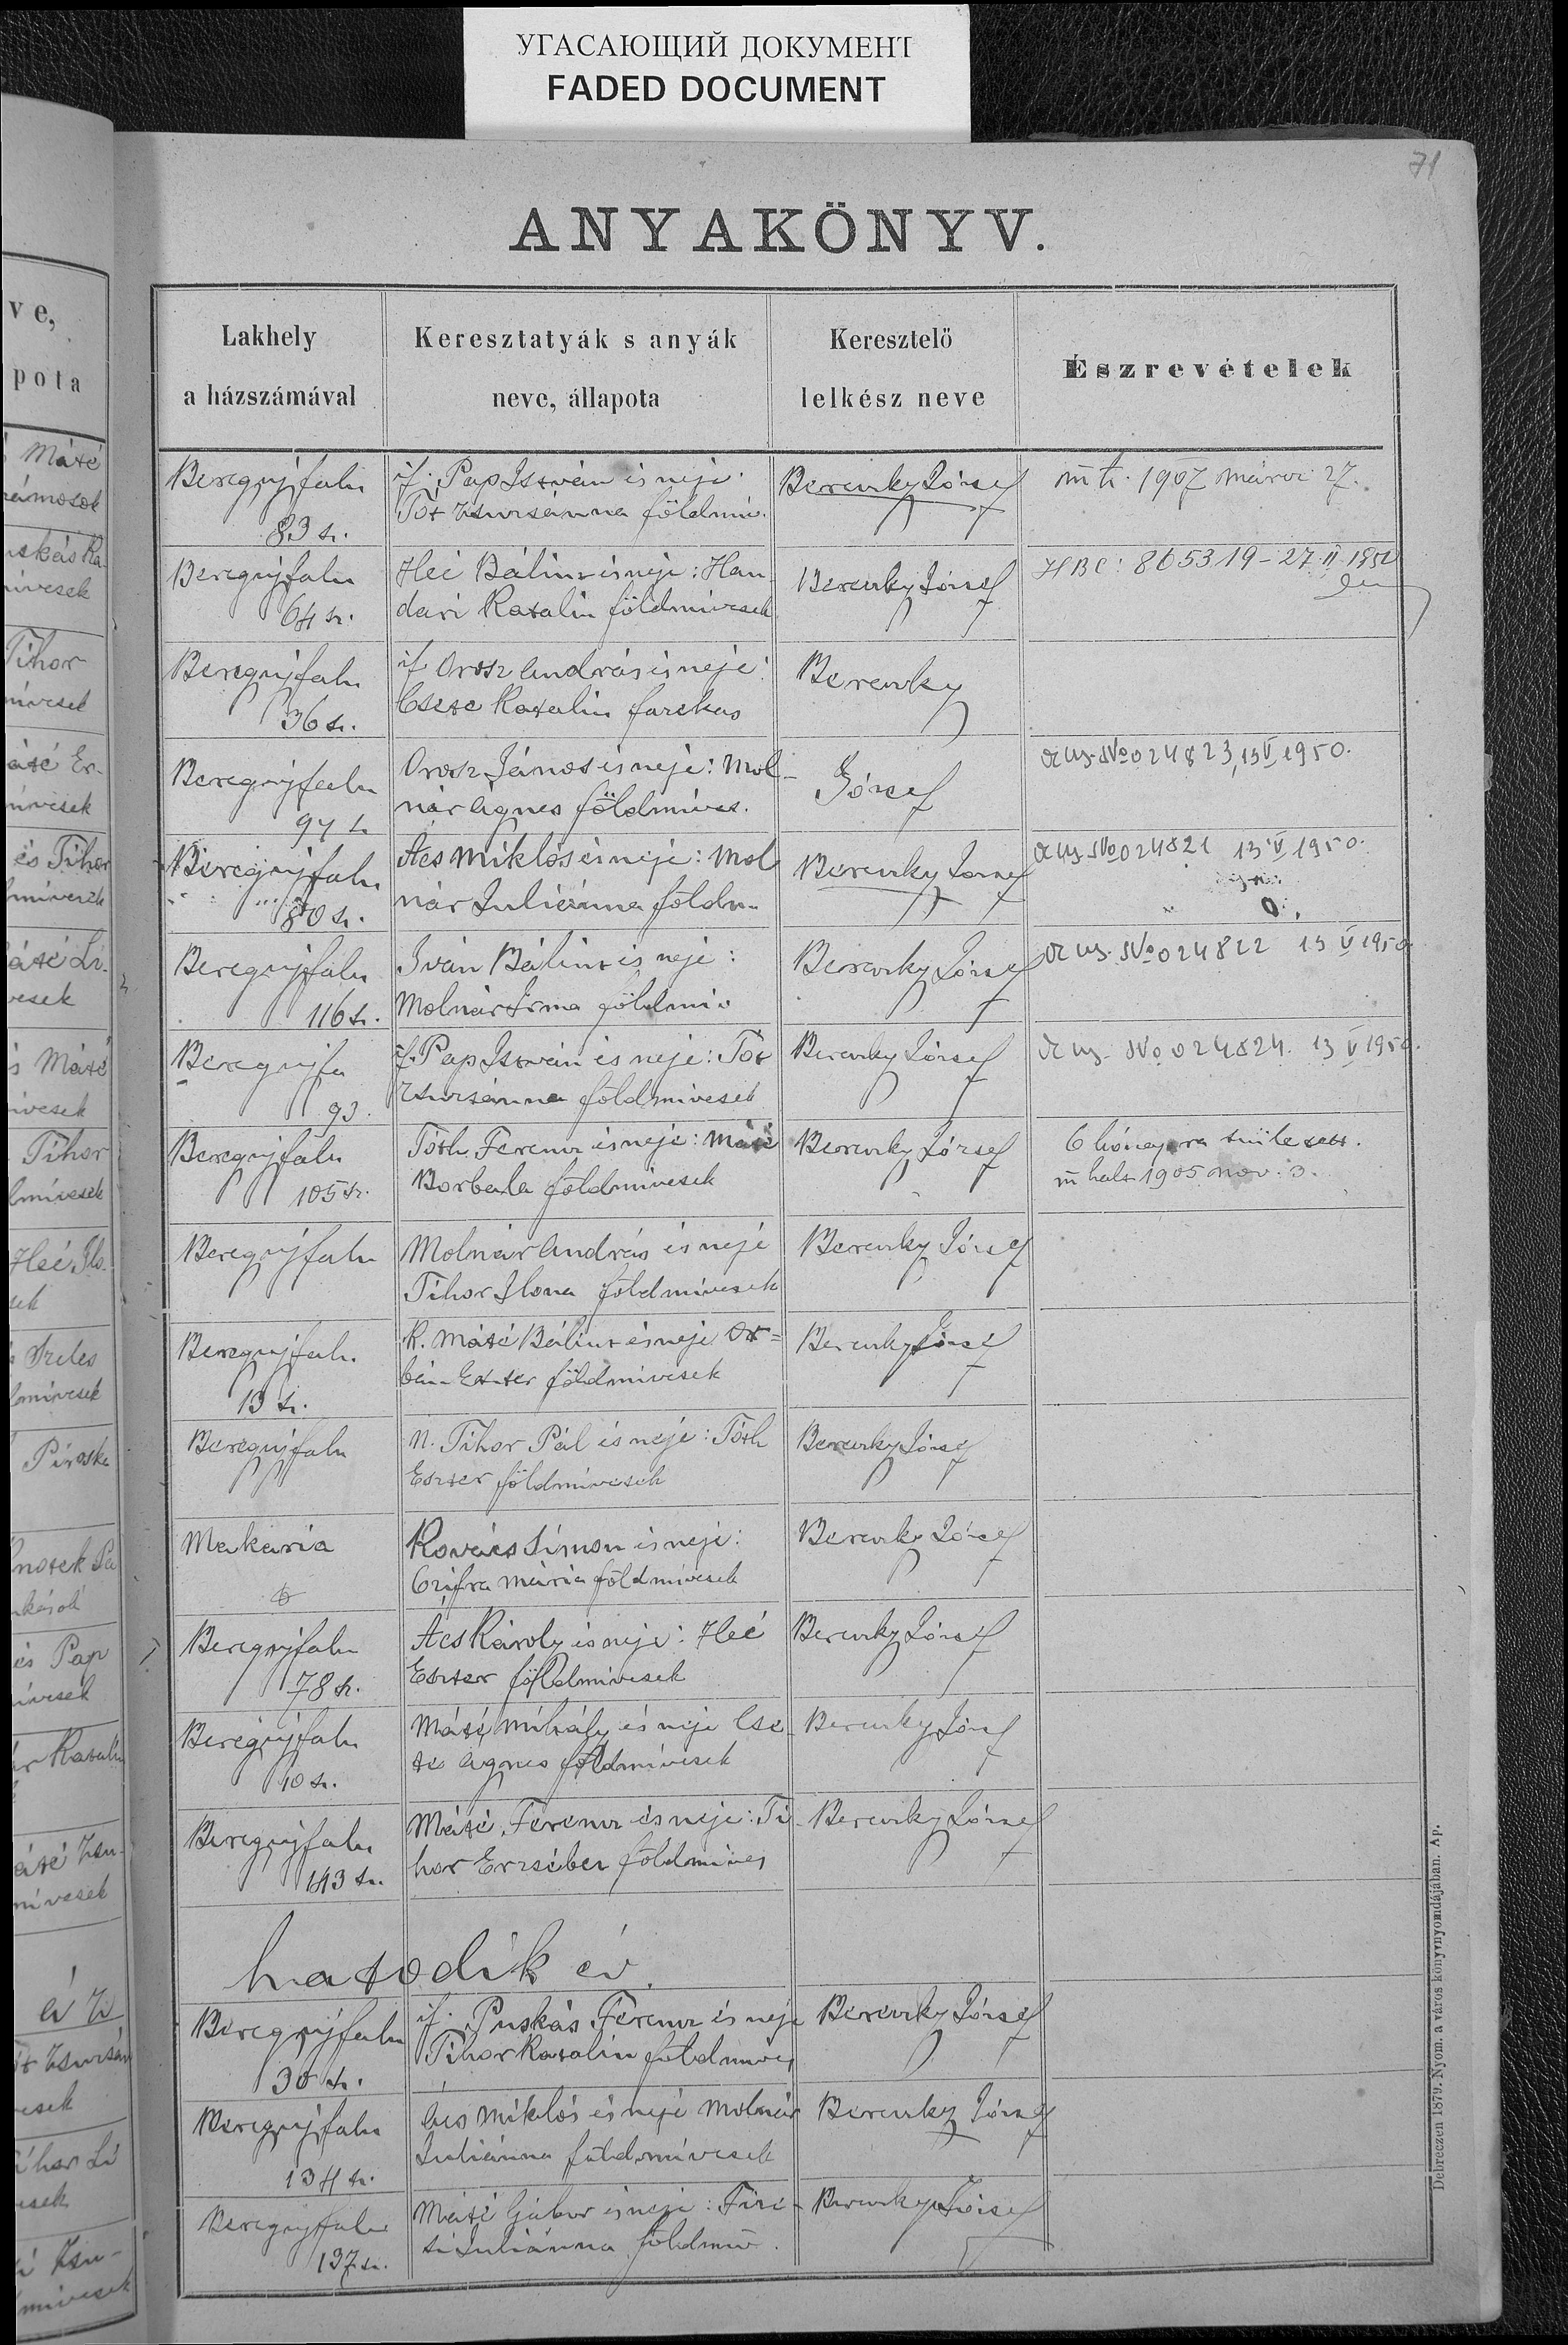 УГАСАЮЩИЙ ДОКУМЕНТ
FADED DOCUMENT
71
ANYAKÖNYV.
Lakhely
a házszámával
Keresztatyák s anyák
neve, állapota
Keresztelő
lelkész neve
Észrevételek
Beregujfalu
83 sz.
if. Pap István és neje
Tót Zsuzsánna földmiv.
Bereczky József
m h. 1907 márcz 27.
Beregujfalu
64 sz.
Héé Bálint és neje: Han
dari Katalin földmivesek
Bereczky József
865319 - 27 II 1950
Beregujfalu
36 sz.
if Orosz András és neje
Csete Katalin
Bereczky
Beregujfalu
94 sz
Orosz János és neje: Mol-
nár Ágnes földmives.
József
No 024823, 13 V 1950.
Beregujfalu
80 sz.
Ács Miklós és neje: Mol
nár Juliánna földm
Bereczky József
No 024821 13 V 1950.
Beregujfalu
116 sz.
Iván Bálint és neje:
Molnár Irma földmiv
Bereczky József
No 024822 13 V 1950
Beregujfa
93.
if. Pap István és neje: Tót
Zsuzsánna földmivesek
Bereczky József
No 024824. 13 V 1950.
Beregujfalu
105 sz.
Tóth Ferencz és neje: Máté
Borbála földmivesek
Bereczky József
6 hónapra született.
m halt 1905 nov. 3.
Beregujfalu
Molnár András és neje
Tihor Ilona földmivesek
Bereczky József
Beregujfalu
13 sz.
K. Máté Bálint és neje Or=
bán Eszter földmivesek
Bereczky József
Beregujfalu
N. Tihor Pál és neje: Tóth
Eszter földmivesek
Bereczky József
Makaria
Kovács Simon és neje:
Czifra Mária földmivesek
Bereczky József
Beregujfalu
78 sz.
Ács Károly és neje: Héé
Eszter földmivesek
Bereczky József
Beregujfalu
10 sz.
Máté Mihály és neje Cse-
te Ágnes földmivesek
Bereczky József
Beregujfalu
143 sz.
Máté Ferencz és neje: Ti-
hor Erzsébet földmives
Bereczky József
hatodik év.
Beregujfalu
30 sz.
if. Puskás Ferencz és neje
Tihor Katalin földmives
Bereczky József
Beregujfalu
134 sz.
Ács Miklós és neje Molnár
Juliánna földmivesek
Bereczky József
Beregujfalu
137 sz.
Máté Gábor és neje:
Juliánna földmiv.
Bereczky József
Debreczen 1879. Nyom. a város könyvnyomdájában. Ap.